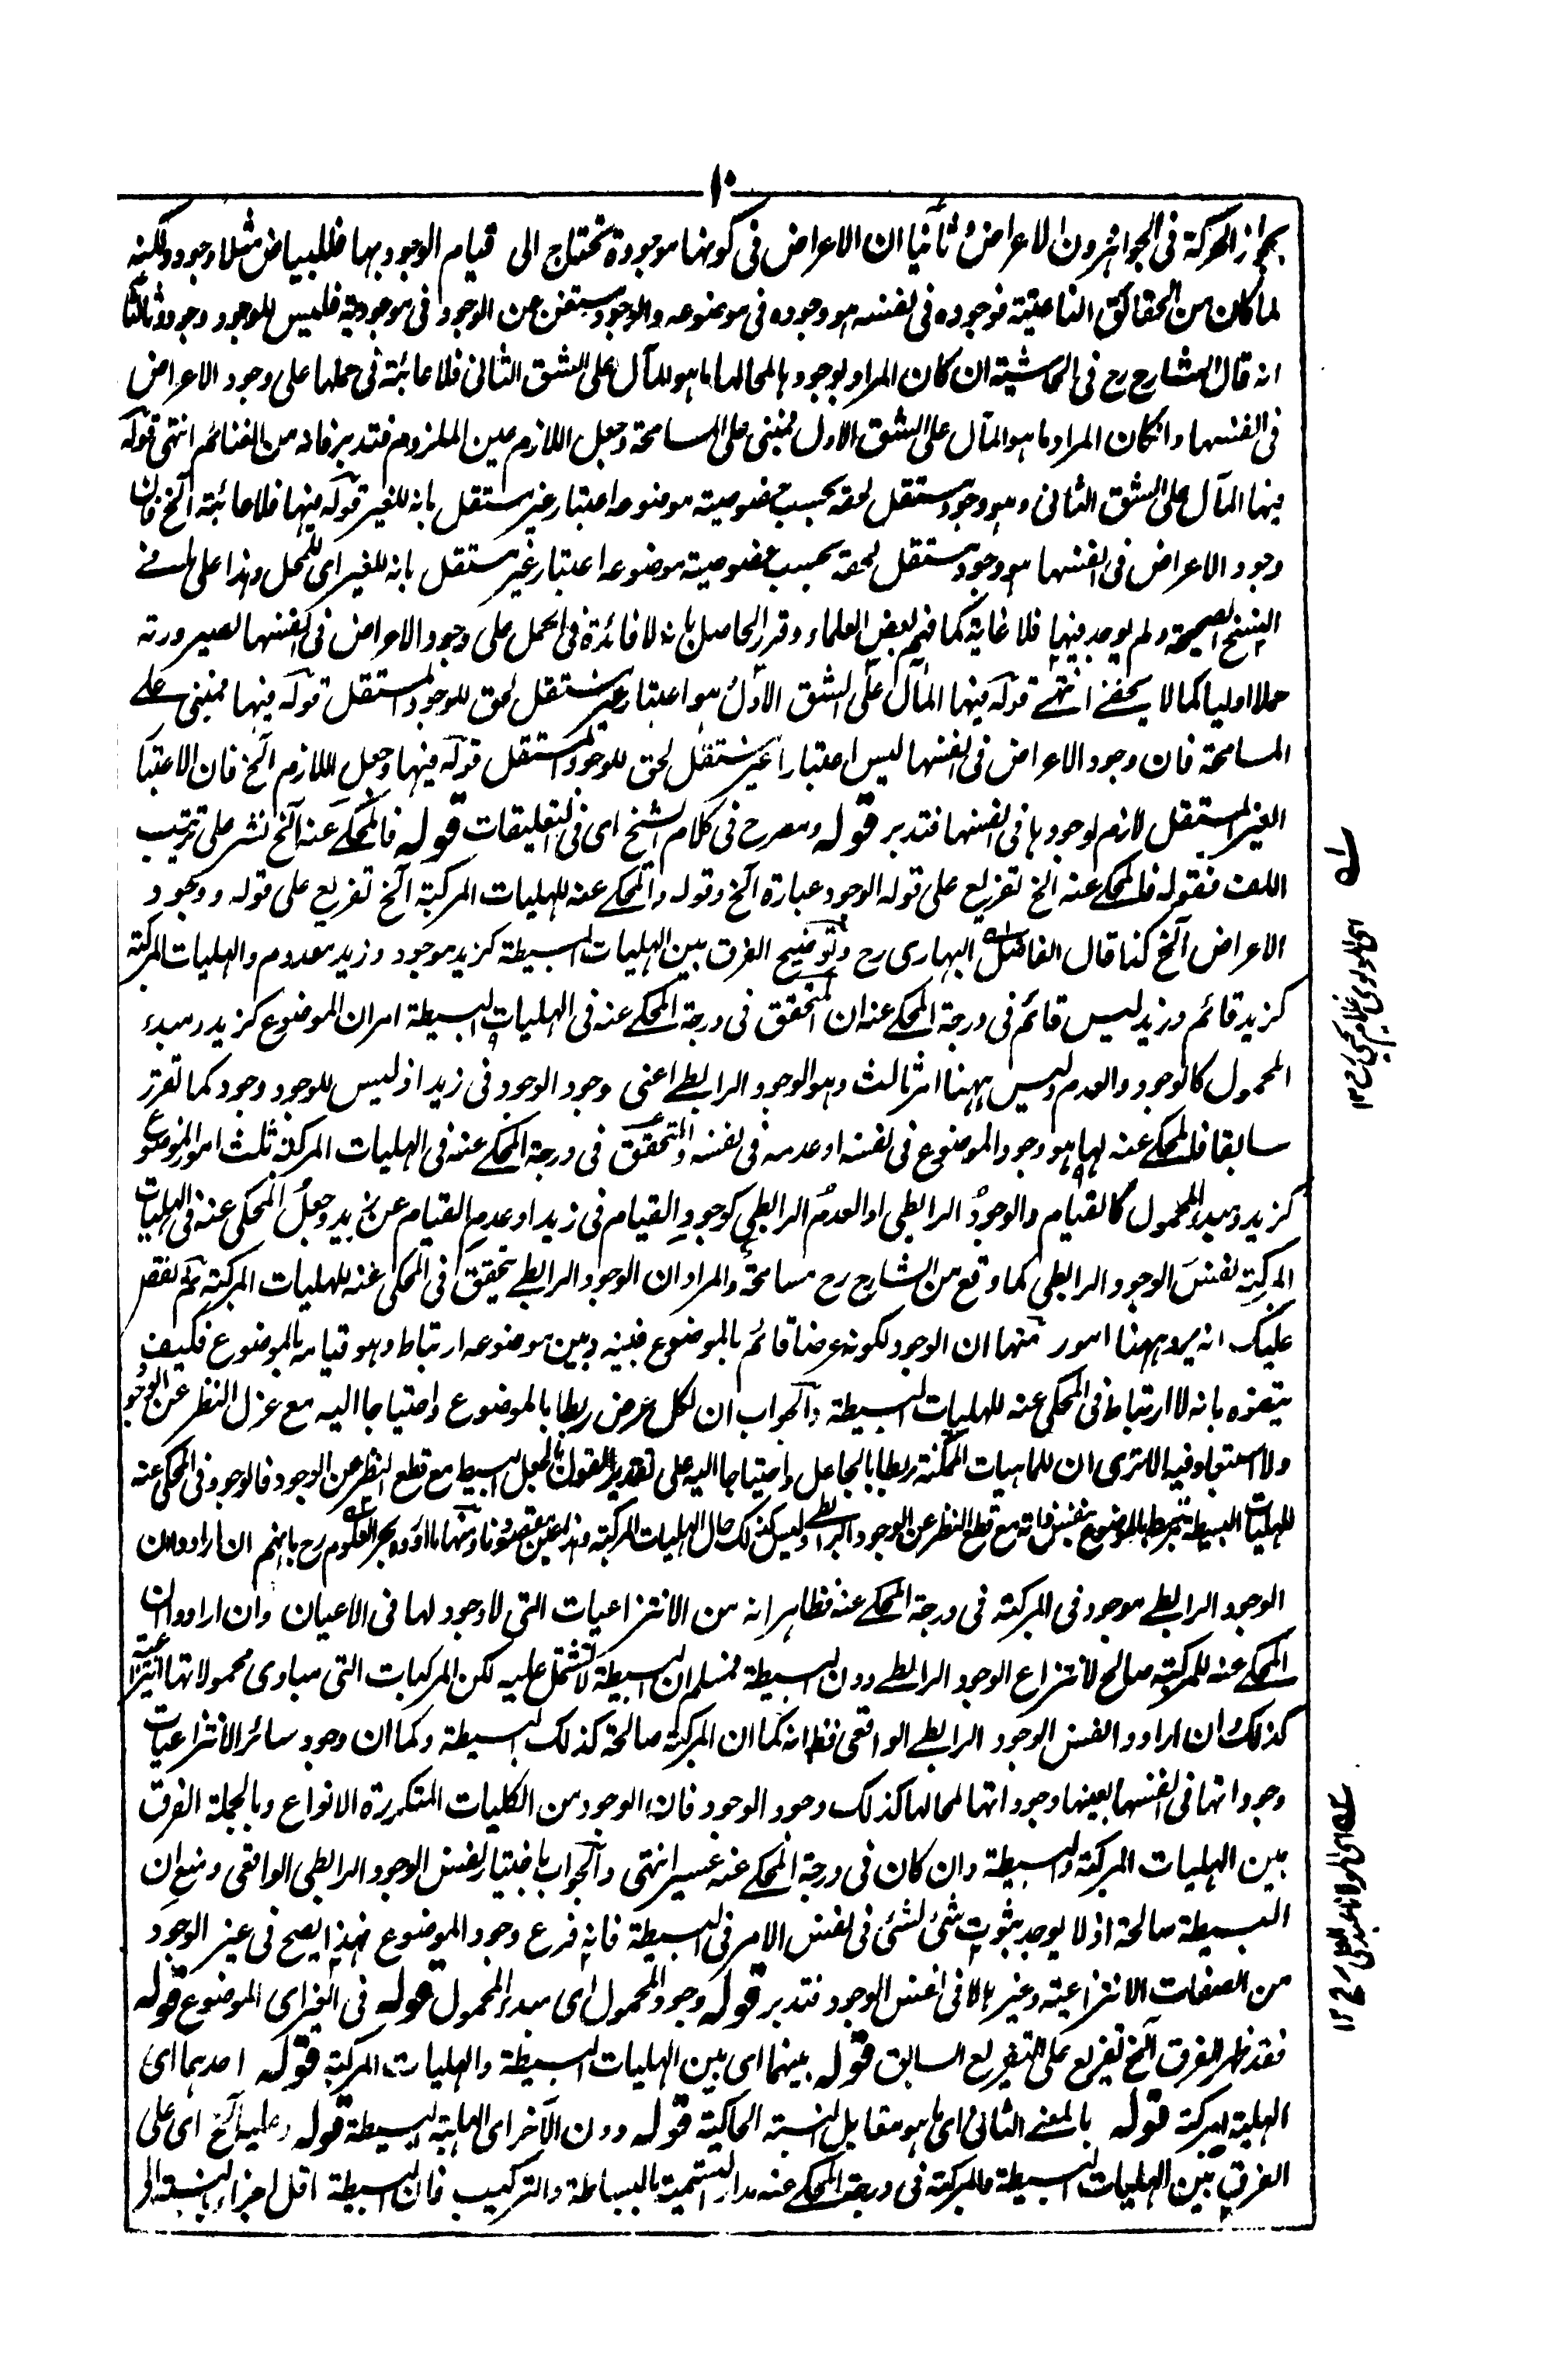 ١٠
بجواز الحركة فى الجواهر دون الاعراض وثانيا ان الاعراض فى كونها موجودة تحتاج الى قيام الوجود بها فللبياض مثلا وجود ولكنه
لما كان من الحقائق الناعتية فوجوده فى نفسه هو وجوده فى موضوعه والوجود مستغن عن الوجود فى موجوديته فليس للوجود وجود وثالثا
انه قال الشارح رح فى الحاشية ان كان المراد بوجودها لمحالها ما هو المآل على الشق الثانى فلا عائبة فى حملها على وجود الاعراض
فى انفسها وان كان المراد ما هو المآل على الشق الاول فمبنى على المسامحة وجعل اللازم عين الملزوم فتدبر فانه من الغنائم انتهى قوله
فيها المآل على الشق الثانى وهو وجود مستقل لحقه بحسب خصوصية موضوعه اعتبار غير مستقل بانه للغير قوله فيها فلا عائبة الخ فان
وجود الاعراض فى انفسها هو وجود مستقل لحقه بحسب خصوصية موضوعه اعتبار غير مستقل بانه للغير اى للمحل وهذا على ما فى
النسخ الصحيحة ولم يوجد فيها فلا غاية كما فهم بعض العلماء وقرر الحاصل بانه لا فائدة فى الحمل على وجود الاعراض فى انفسها لصيرورته
حملا اوليا كما لا يخفى انتهى قوله فيها المآل على الشق الاول هو اعتبار غير مستقل لحق للوجود المستقل قوله فيها فمبنى على
المسامحة فان وجود الاعراض فى انفسها ليس اعتبارا غير مستقل لحق للوجود المستقل قوله فيها وجعل اللازم الخ فان الاعتبار
الغير المستقل لازم لوجودها فى انفسها فتدبر قوله ومصرح فى كلام الشيخ اى فى التعليقات قوله فالمحكى عنه الخ نشر على ترتيب
اللف فقوله فالمحكى عنه الخ تفريع على قوله الوجود عبارة الخ وقوله والمحكى عنه للهليات المركبة الخ تفريع على قوله ووجود
الاعراض الخ كذا قال الفاضل البهارى رح وتوضيح الفرق بين الهليات البسيطة كزيد موجود وزيد معدوم والهليات المركبة
كزيد قائم وزيد ليس قائم فى درجة المحكى عنه ان المتحقق فى درجة المحكى عنه فى الهليات البسيطة امران الموضوع كزيد ومبدء
المحمول كالوجود والعدم وليس ههنا امر ثالث وهو الوجود الرابطى اعنى وجود الوجود فى زيد اذ ليس للوجود وجود كما تقرر
سابقا فالمحكى عنه لها هو وجود الموضوع فى نفسه او عدمه فى نفسه والمتحقق فى درجة المحكى عنه فى الهليات المركبة ثلث امور الموضوع
كزيد ومبدء المحمول كالقيام والوجود الرابطى او العدم الرابطى كوجود القيام فى زيد او عدم القيام عن زيد وجعل المحكى عنه فى الهليات
المركبة نفس الوجود الرابطى كما وقع من الشارح رح مسامحة والمراد ان الوجود الرابطى تحقق فى المحكى عنه للهليات المركبة ثم نقص
عليك انه يرد ههنا امور منها ان الوجود لكونه عرضا قائم بالموضوع فبينه وبين موضوعه ارتباط وهو قيامه بالموضوع فكيف
يتفوه بانه لا ارتباط فى المحكى عنه للهليات البسيطة والجواب ان لكل عرض ربطا بالموضوع واحتياجا اليه مع عزل النظر عن الوجود
ولا استبعاد فيه الا ترى ان للماهيات الممكنة ربطا بالجاعل واحتياجا اليه على تقدير القول بالجعل البسيط مع قطع النظر عن الوجود فالوجود فى المحكى عنه
للهليات البسيطة مرتبط بالموضوع بنفس ذاته مع قطع النظر عن الوجود الرابطى وليس كذلك حال الهليات المركبة وهذا عين مقصودنا ومنها ما اورده بحر العلوم رح بانهم ان ارادوا ان
الوجود الرابطى موجود فى المركبة فى درجة المحكى عنه فظاهر انه من الانتزاعيات التى لا وجود لها فى الاعيان وان ارادوا ان
المحكى عنه للمركبة صالح لانتزاع الوجود الرابطى دون البسيطة فمسلم ان البسيطة لا تشتمل عليه لكن المركبات التى مبادى محمولاتها انتزاعية
كذلك وان ارادوا نفس الوجود الرابطى الواقعى فظ انه كما ان المركبة صالحة كذلك البسيطة وكما ان وجود سائر الانتزاعيات
وجوداتها فى انفسها بعينها وجوداتها لمحالها كذلك وجود الوجود فان الوجود من الكليات المتكررة الانواع وبالجملة الفرق
بين الهليات المركبة والبسيطة وان كان فى درجة المحكى عنه عسير انتهى والجواب باختيار نفس الوجود الرابطى الواقعى ومنع ان
البسيطة صالحة اذ لا يوجد ثبوت شئ لشئ فى نفس الامر فى البسيطة فانه فرع وجود الموضوع فهذا يصح فى غير الوجود
من الصفات الانتزاعية وغيرها لا فى نفس الوجود فتدبر قوله وجود المحمول اى مبدء المحمول قوله فى الغير اى الموضوع قوله
فقد ظهر الفرق الخ تفريع على التفريع السابق قوله بينهما اى بين الهليات البسيطة والهليات المركبة قوله احدهما اى
الهلية المركبة قوله بالمعنى الثانى اى ما هو مقابل النسبة الحاكية قوله دون الآخر اى الهلية البسيطة قوله وعليه الخ اى على
الفرق بين الهليات البسيطة والمركبة فى درجة المحكى عنه مدار التسمية بالبساطة والتركيب فان البسيطة اقل اجزاء بالنسبة الى
اى المولوى غلام يحيى ١٢
اى المولانا عبد العلى رح ١٢